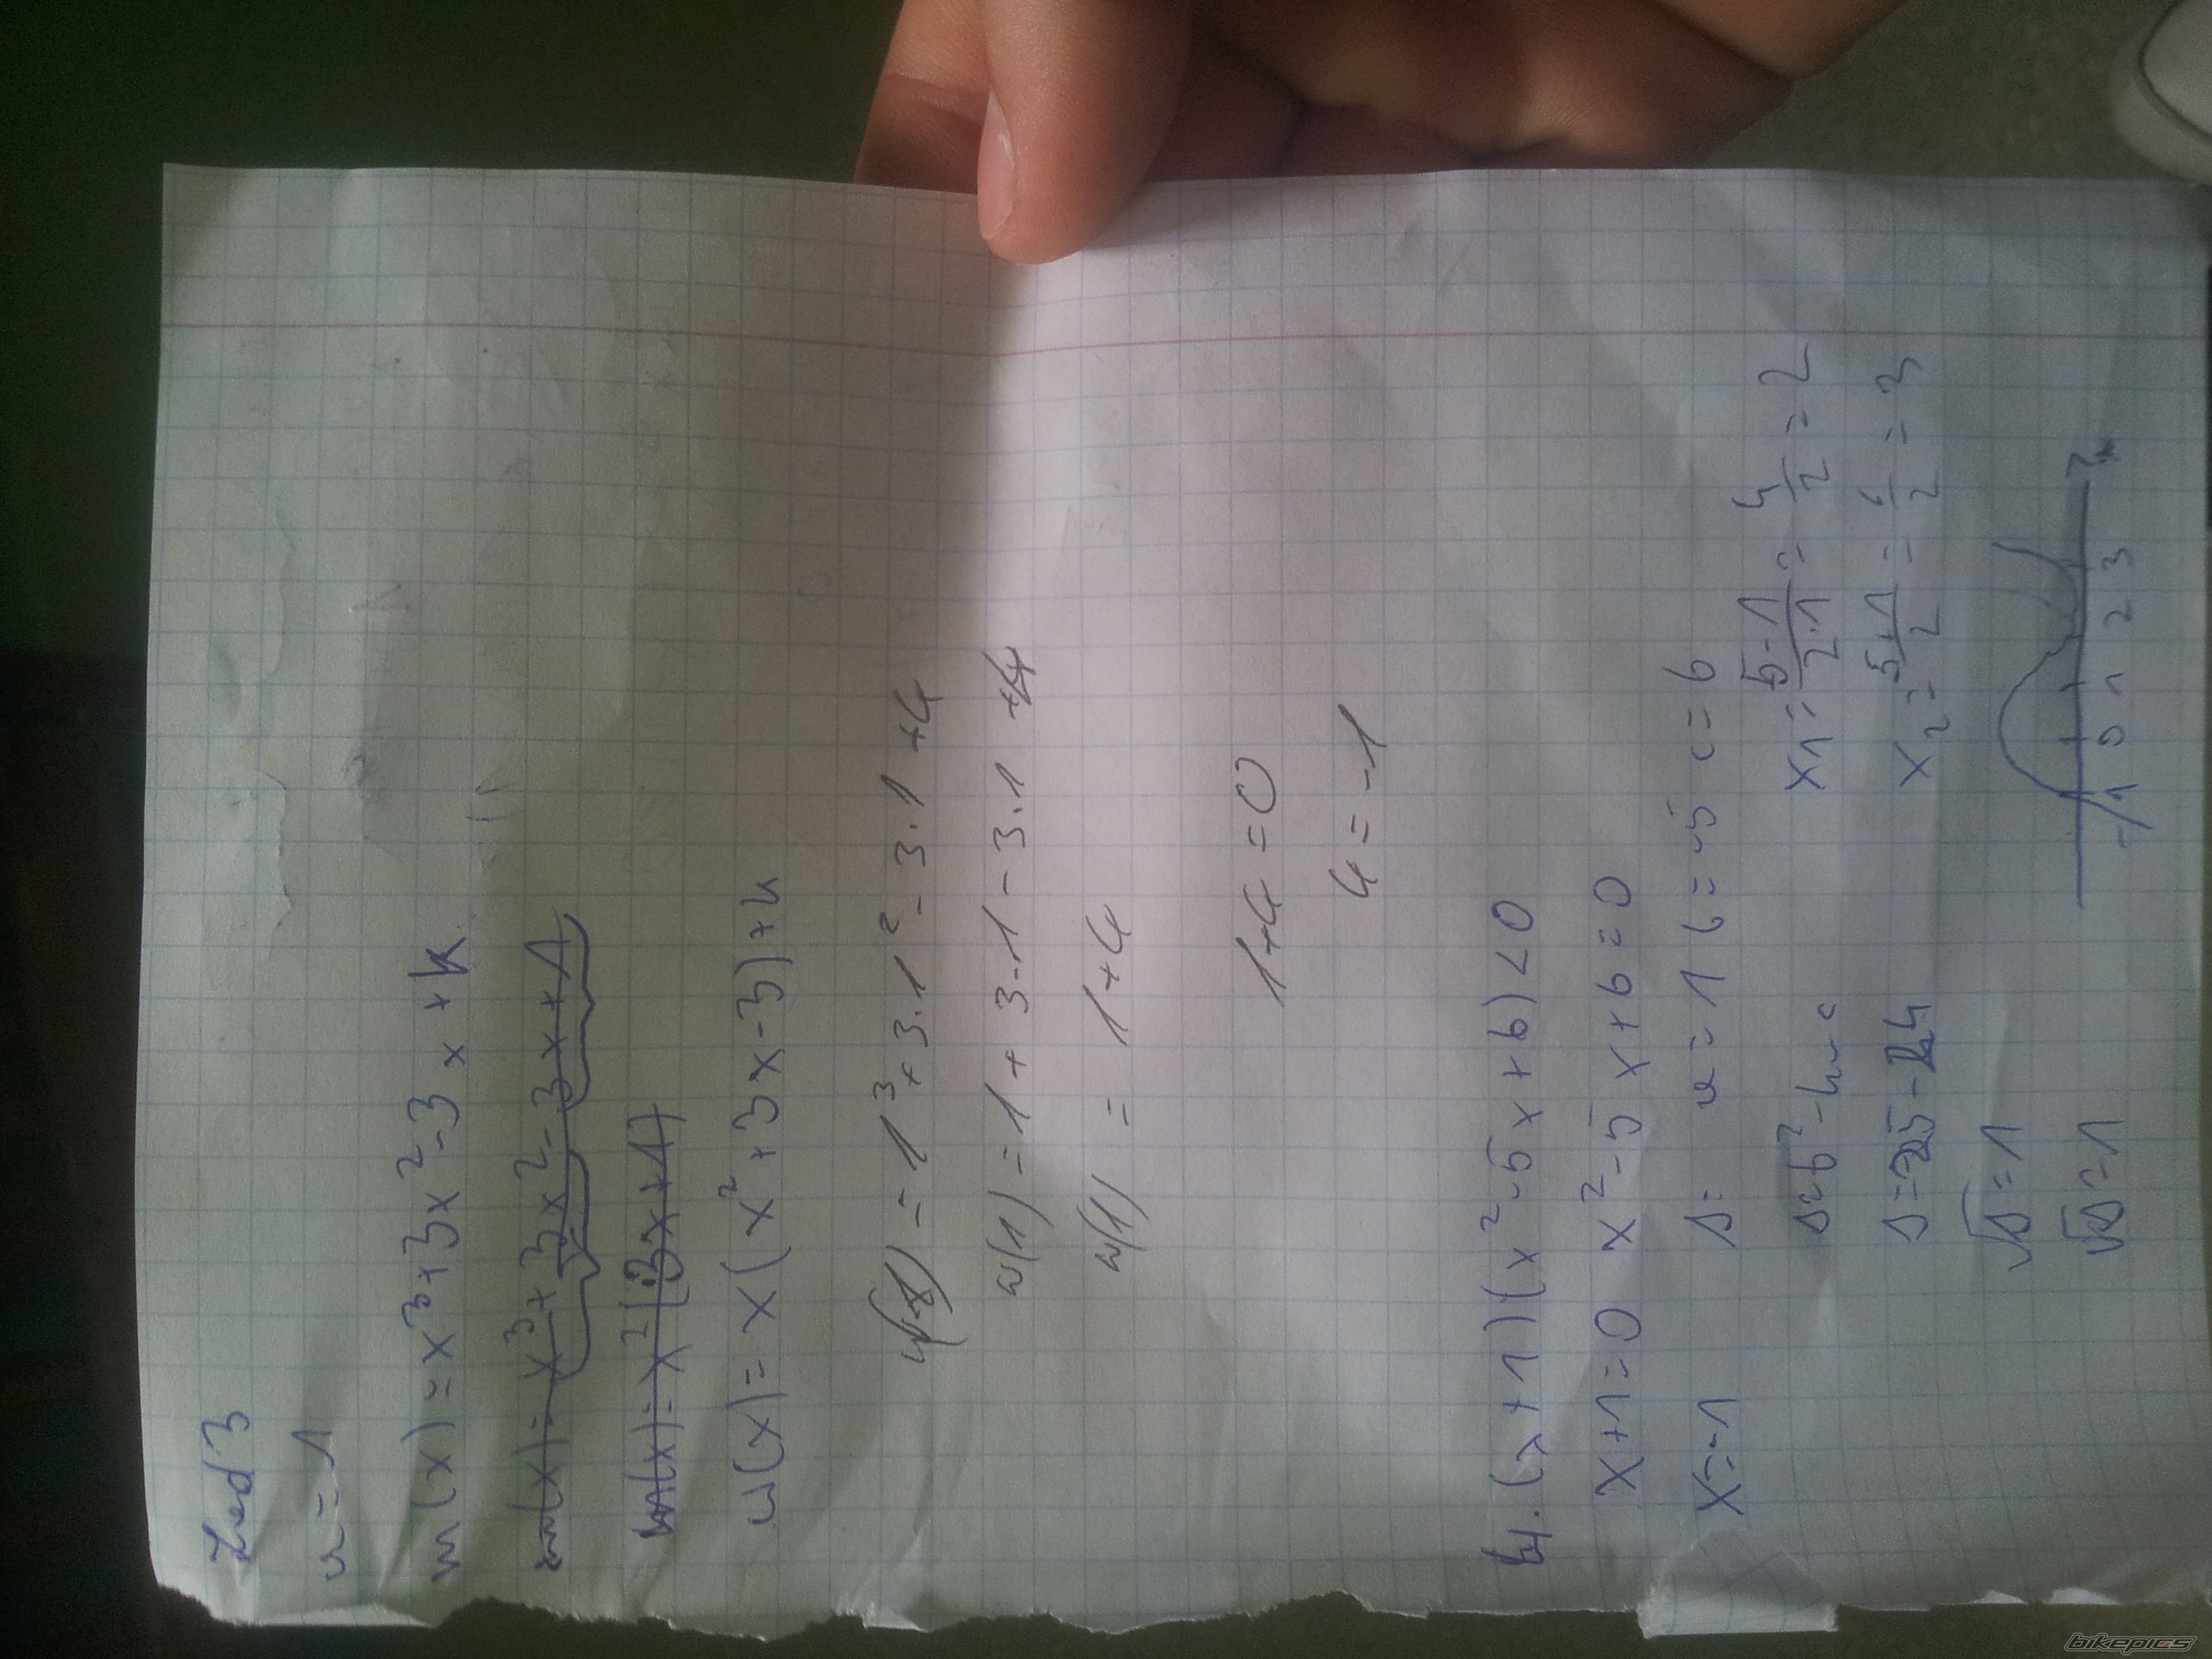 Zad 3
a = 1
w(x) = x³ + 3x² - 3x + k
w(x) = x³ + 3x² - 3x + 1
w(x) = x² (3x + 1)
w(x) = x (x² + 3x - 3) + k
w(1) = 1³ + 3·1² - 3·1 + k
w(1) = 1 + 3·1 - 3·1 + k
w(1) = 1 + k
1 + k = 0
k = -1
4. (x + 1)(x² - 5x + 6) < 0
x + 1 = 0 x² - 5x + 6 = 0
x = -1 Δ= a = 1 b = -5 c = 6
Δ = b² - 4ac x1 = 5-1/2·1 = 4/2 = 2
Δ = 25 - 24 x2 = 5+1/2 = 6/2 = 3
√Δ = 1
√Δ = 1
-1 0 1 2 3 x
bikepics